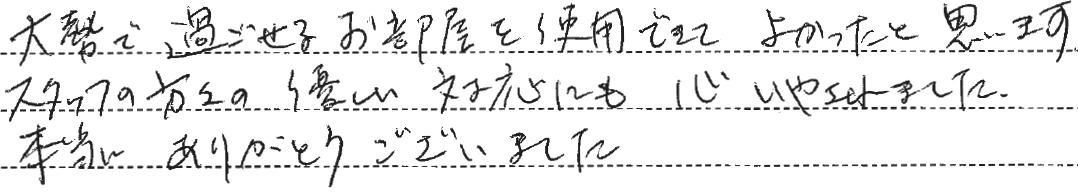 大勢で過ごせるお部屋を使用できて よかったと思います
スタッフの方々の優しい対応にも心いやされました。
本当に ありがとうございました